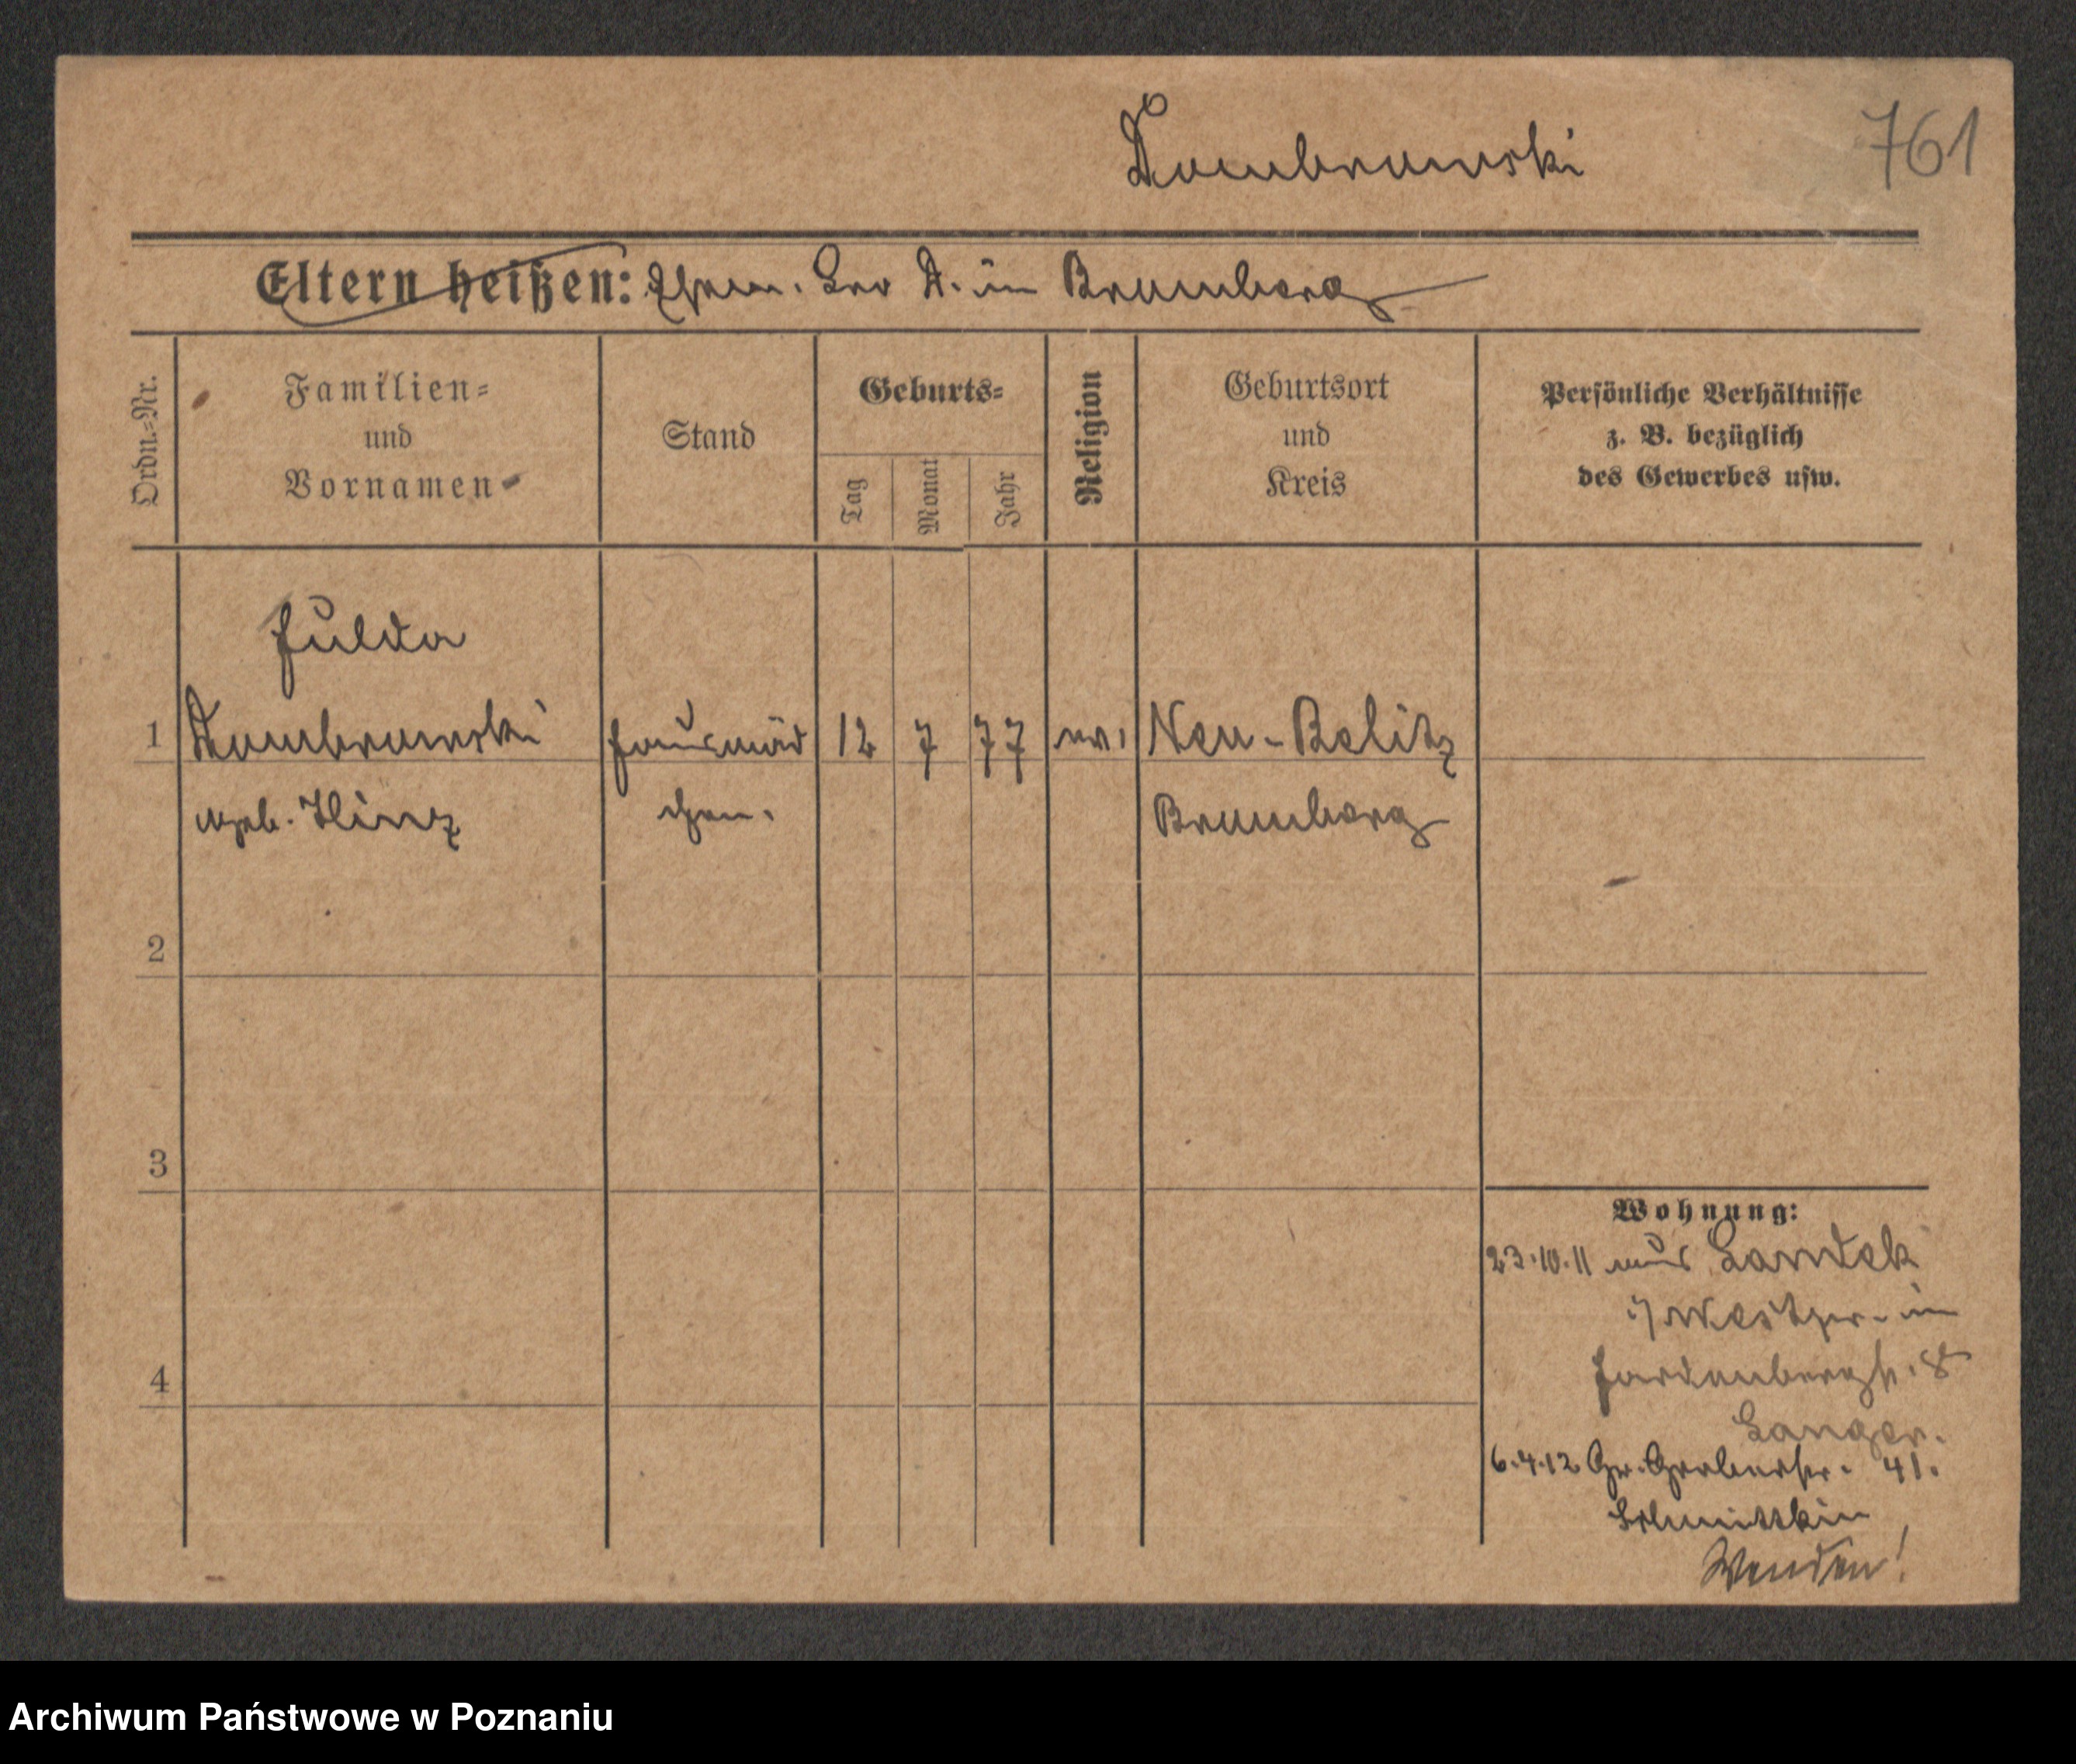 Dombrowski
761
Eltern heißen: Ehem. Leo D. in Bromberg
Ordn.-Nr.
Familien-
und
Vornamen
Stand
Geburts-
Tag
Monat
Jahr
Religion
Geburtsort
und
Kreis
Persönliche Verhältnisse
z. B. bezüglich
des Gewerbes usw.
Hulda
1 Dombrowski Hausmäd 12 7 77 ev. Neu-Belitz
geb. Hinz chen. Bromberg
2
3
4
Wohnung:
23.10.11 aus Landek
i/Westpr. in
Hardenbergstr. 8
Langer.
6.4.12 Gr. Gerberstr. 41.
Wenden!
Archiwum Państwowe w Poznaniu